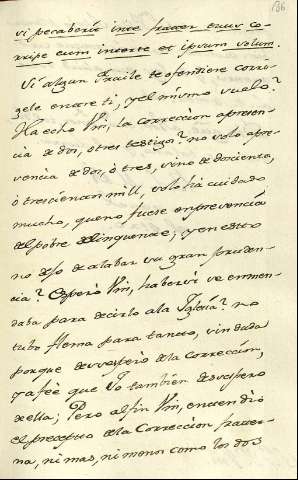 136
si pecaberit inte frater tuus co-
rripe eum interte et ipsum solum.
Si algun fraile te ofendiere corri-
gele entre ti, y el mismo
Ha echo Vm, la correccion apresen-
cia de dos, o tres testigos? no solo apre-
sencia de dos, ò tres, sino de docientos,
ò trescientos mill, solo ha cuidado
mucho, que no fuese en presencia
del pobre delinquente; y en esto
no de alabar su gran pruden-
cia? Esperò Vm, haber si se enmen-
daba para decirlo ala Iglesia? no
tubo flema para tanto, sin duda
porque desesperò dela Correccion,
yafeè que Yo tambien desespero
de ella; Pero alfin Vm, entendiò
el precepto dela Correccion frater-
na, ni mas, ni menos como los dos